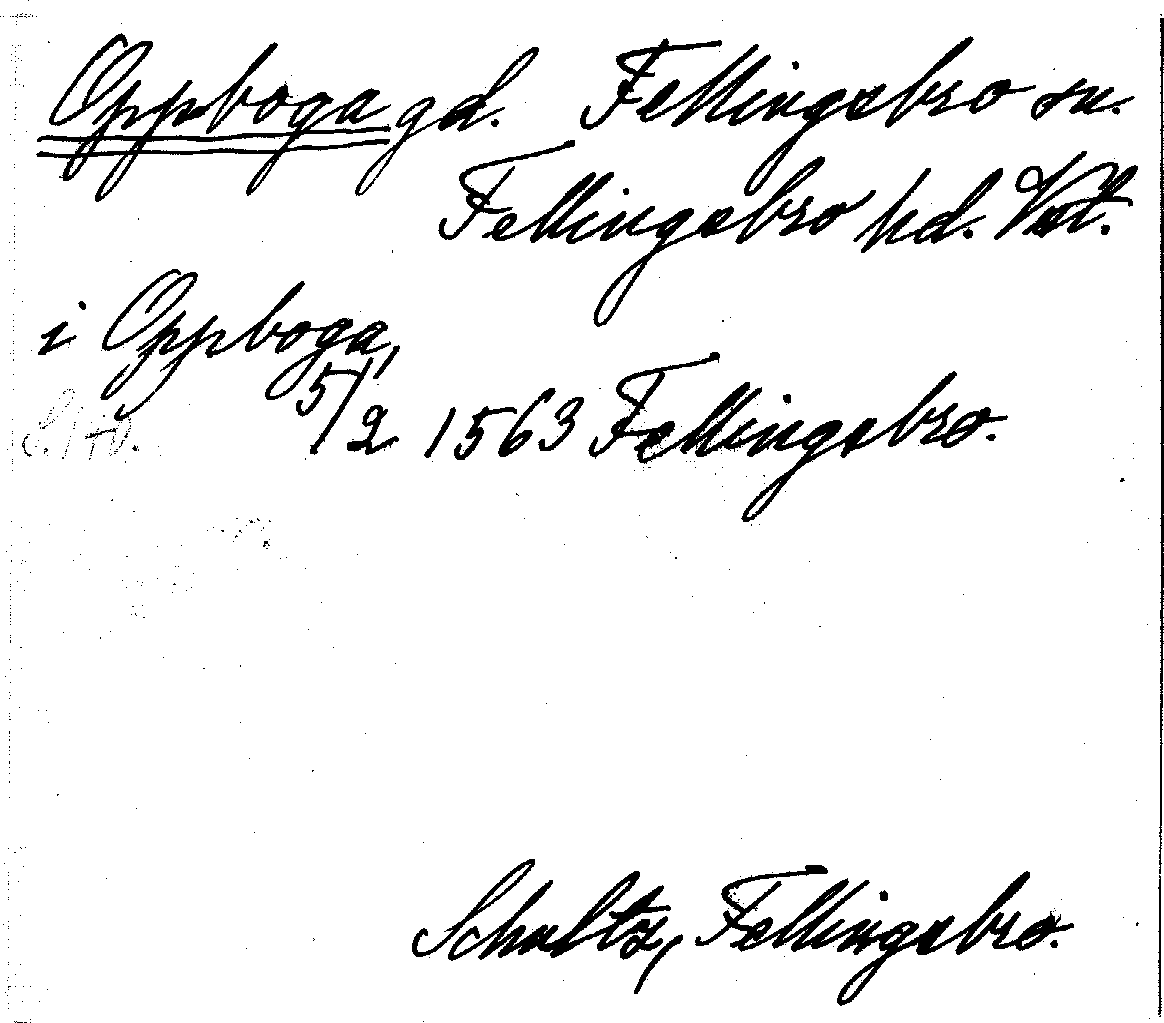 Oppboga gd. Fellingsbro sn.
Fellingsbro hd. Vstl.
i Oppboga,
5/2 1563 Fellingsbro.
Schultz, Fellingsbro.